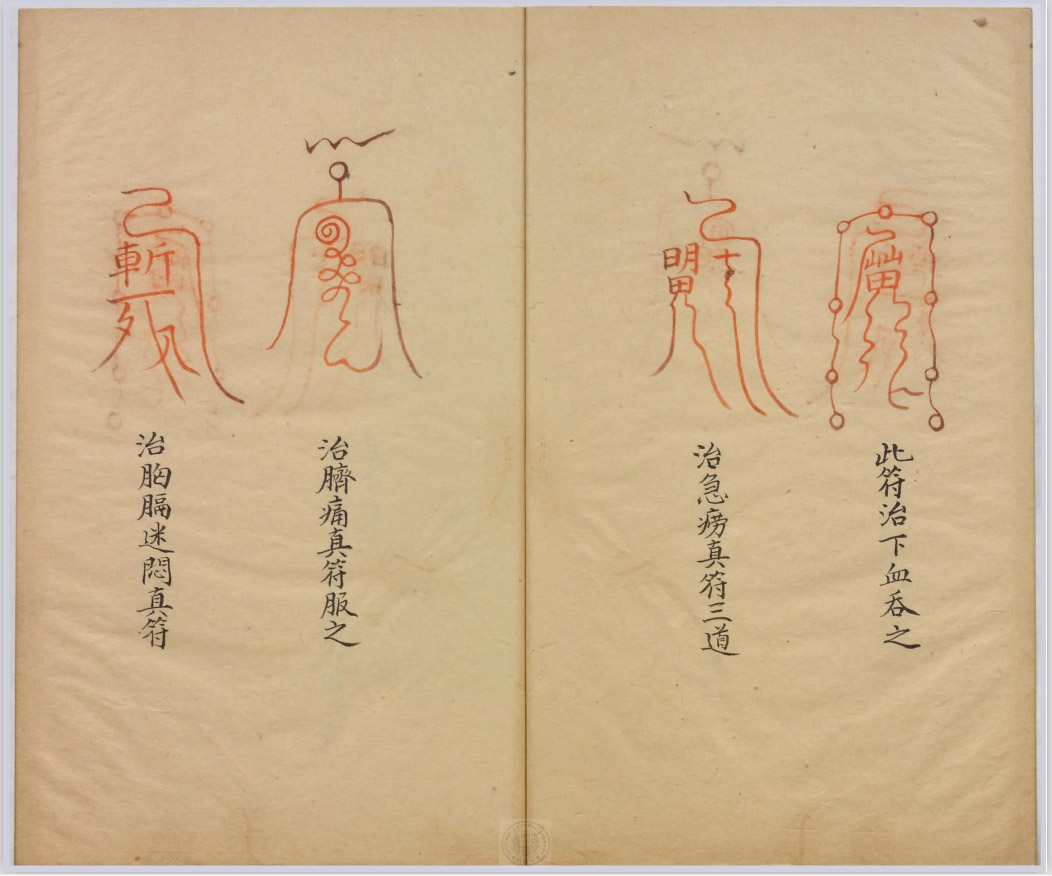 此符治下血吞之
治急癆真符三道
治臍痛真符服之
治胸膈迷悶真符